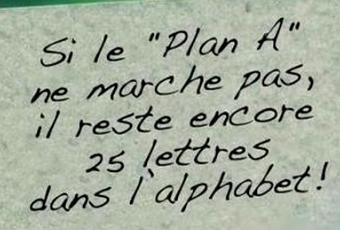 Si le "Plan A"
ne marche pas,
il reste encore
25 lettres
dans l'alphabet!